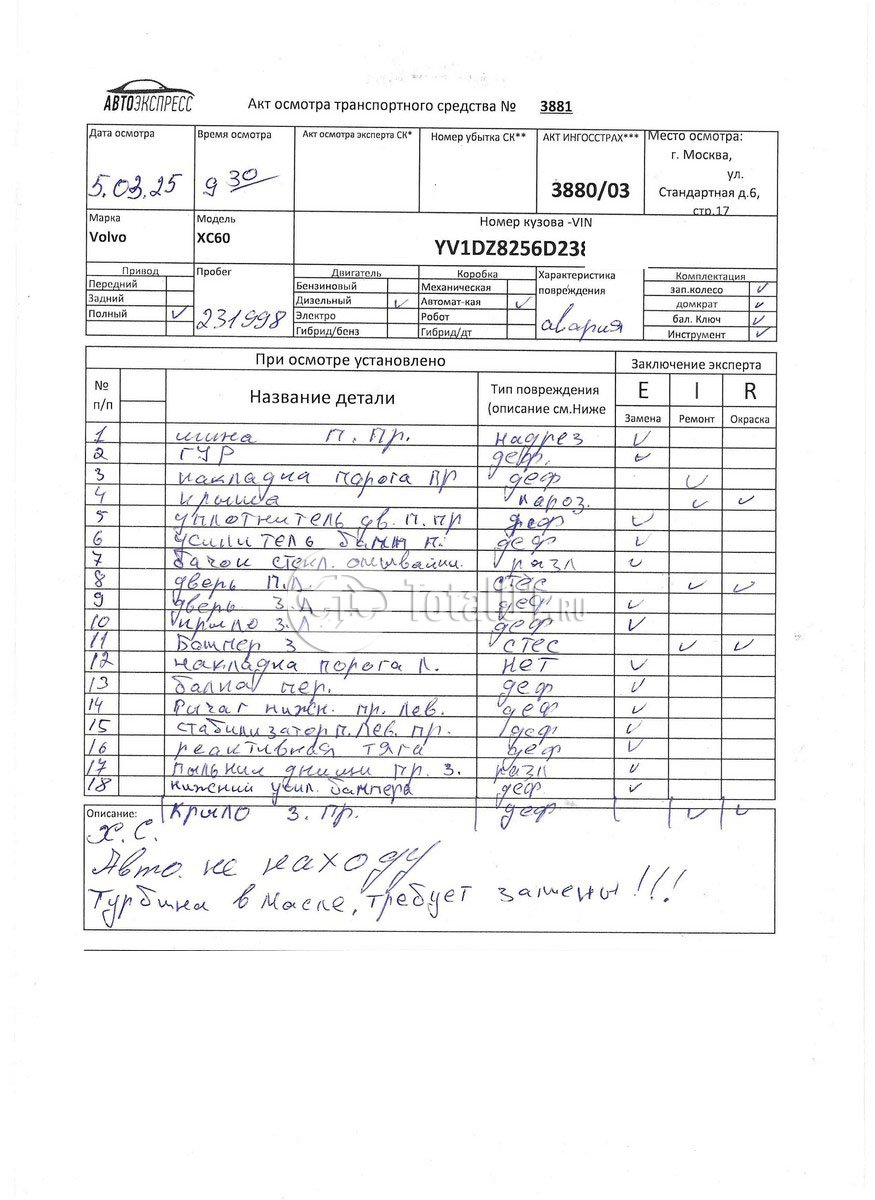 АВТОЭКСПРЕСС
Акт осмотра транспортного средства № 3881
Дата осмотра Время осмотра Акт осмотра эксперта СК* Номер убытка СК** АКТ ИНГОССТРАХ*** Место осмотра:
г. Москва,
ул.
5.03.25 9 30 3880/03 Стандартная д.6,
стр.17
Марка Модель Номер кузова -VIN
Volvo XC60 YV1DZ8256D238
Привод Пробег Двигатель Коробка Характеристика Комплектация
Передний Бензиновый Механическая повреждения зап.колесо ✓
Задний Дизельный ✓ Автомат-кая ✓ домкрат ✓
Полный ✓ 231998 Электро Робот авария бал. Ключ ✓
Гибрид/бенз Гибрид/дт Инструмент ✓
При осмотре установлено Заключение эксперта
№ п/п Название детали Тип повреждения (описание см.Ниже E I R
Замена Ремонт Окраска
1 шина п. пр. надрез ✓
2 ГУР деф. ✓
3 накладка порога пр деф ✓
4 крыша кароз. ✓ ✓
5 уплотнитель дв. п. пр деф ✓
6 усилитель бамп п. деф ✓
7 бачок стекл. омывайки. разл ✓
8 дверь П.Л. стес ✓ ✓
9 дверь З.Л деф ✓
10 крыло З.Л деф ✓
11 Бампер З стес ✓ ✓
12 накладка порога Л. нет ✓
13 балка пер. деф ✓
14 Рычаг нижн. пр. Лев. деф ✓
15 стабилизатор п. Лев. пр. деф ✓
16 реактивная тяга деф ✓
17 пыльник днищи пр. З. разл ✓
18 нижний усил. бампера деф ✓
Крыло З. Пр. деф ✓ ✓
Описание:
Х.С.
Авто не находу
Турбина в масле, требует замены!!!
Total01.RU